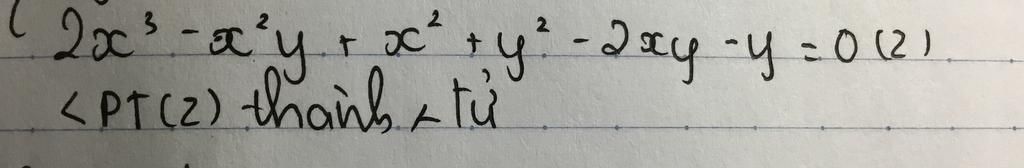 ( 2x³ - x²y + x² + y² - 2xy - y = 0 (2)
< PT(2) thành < tử